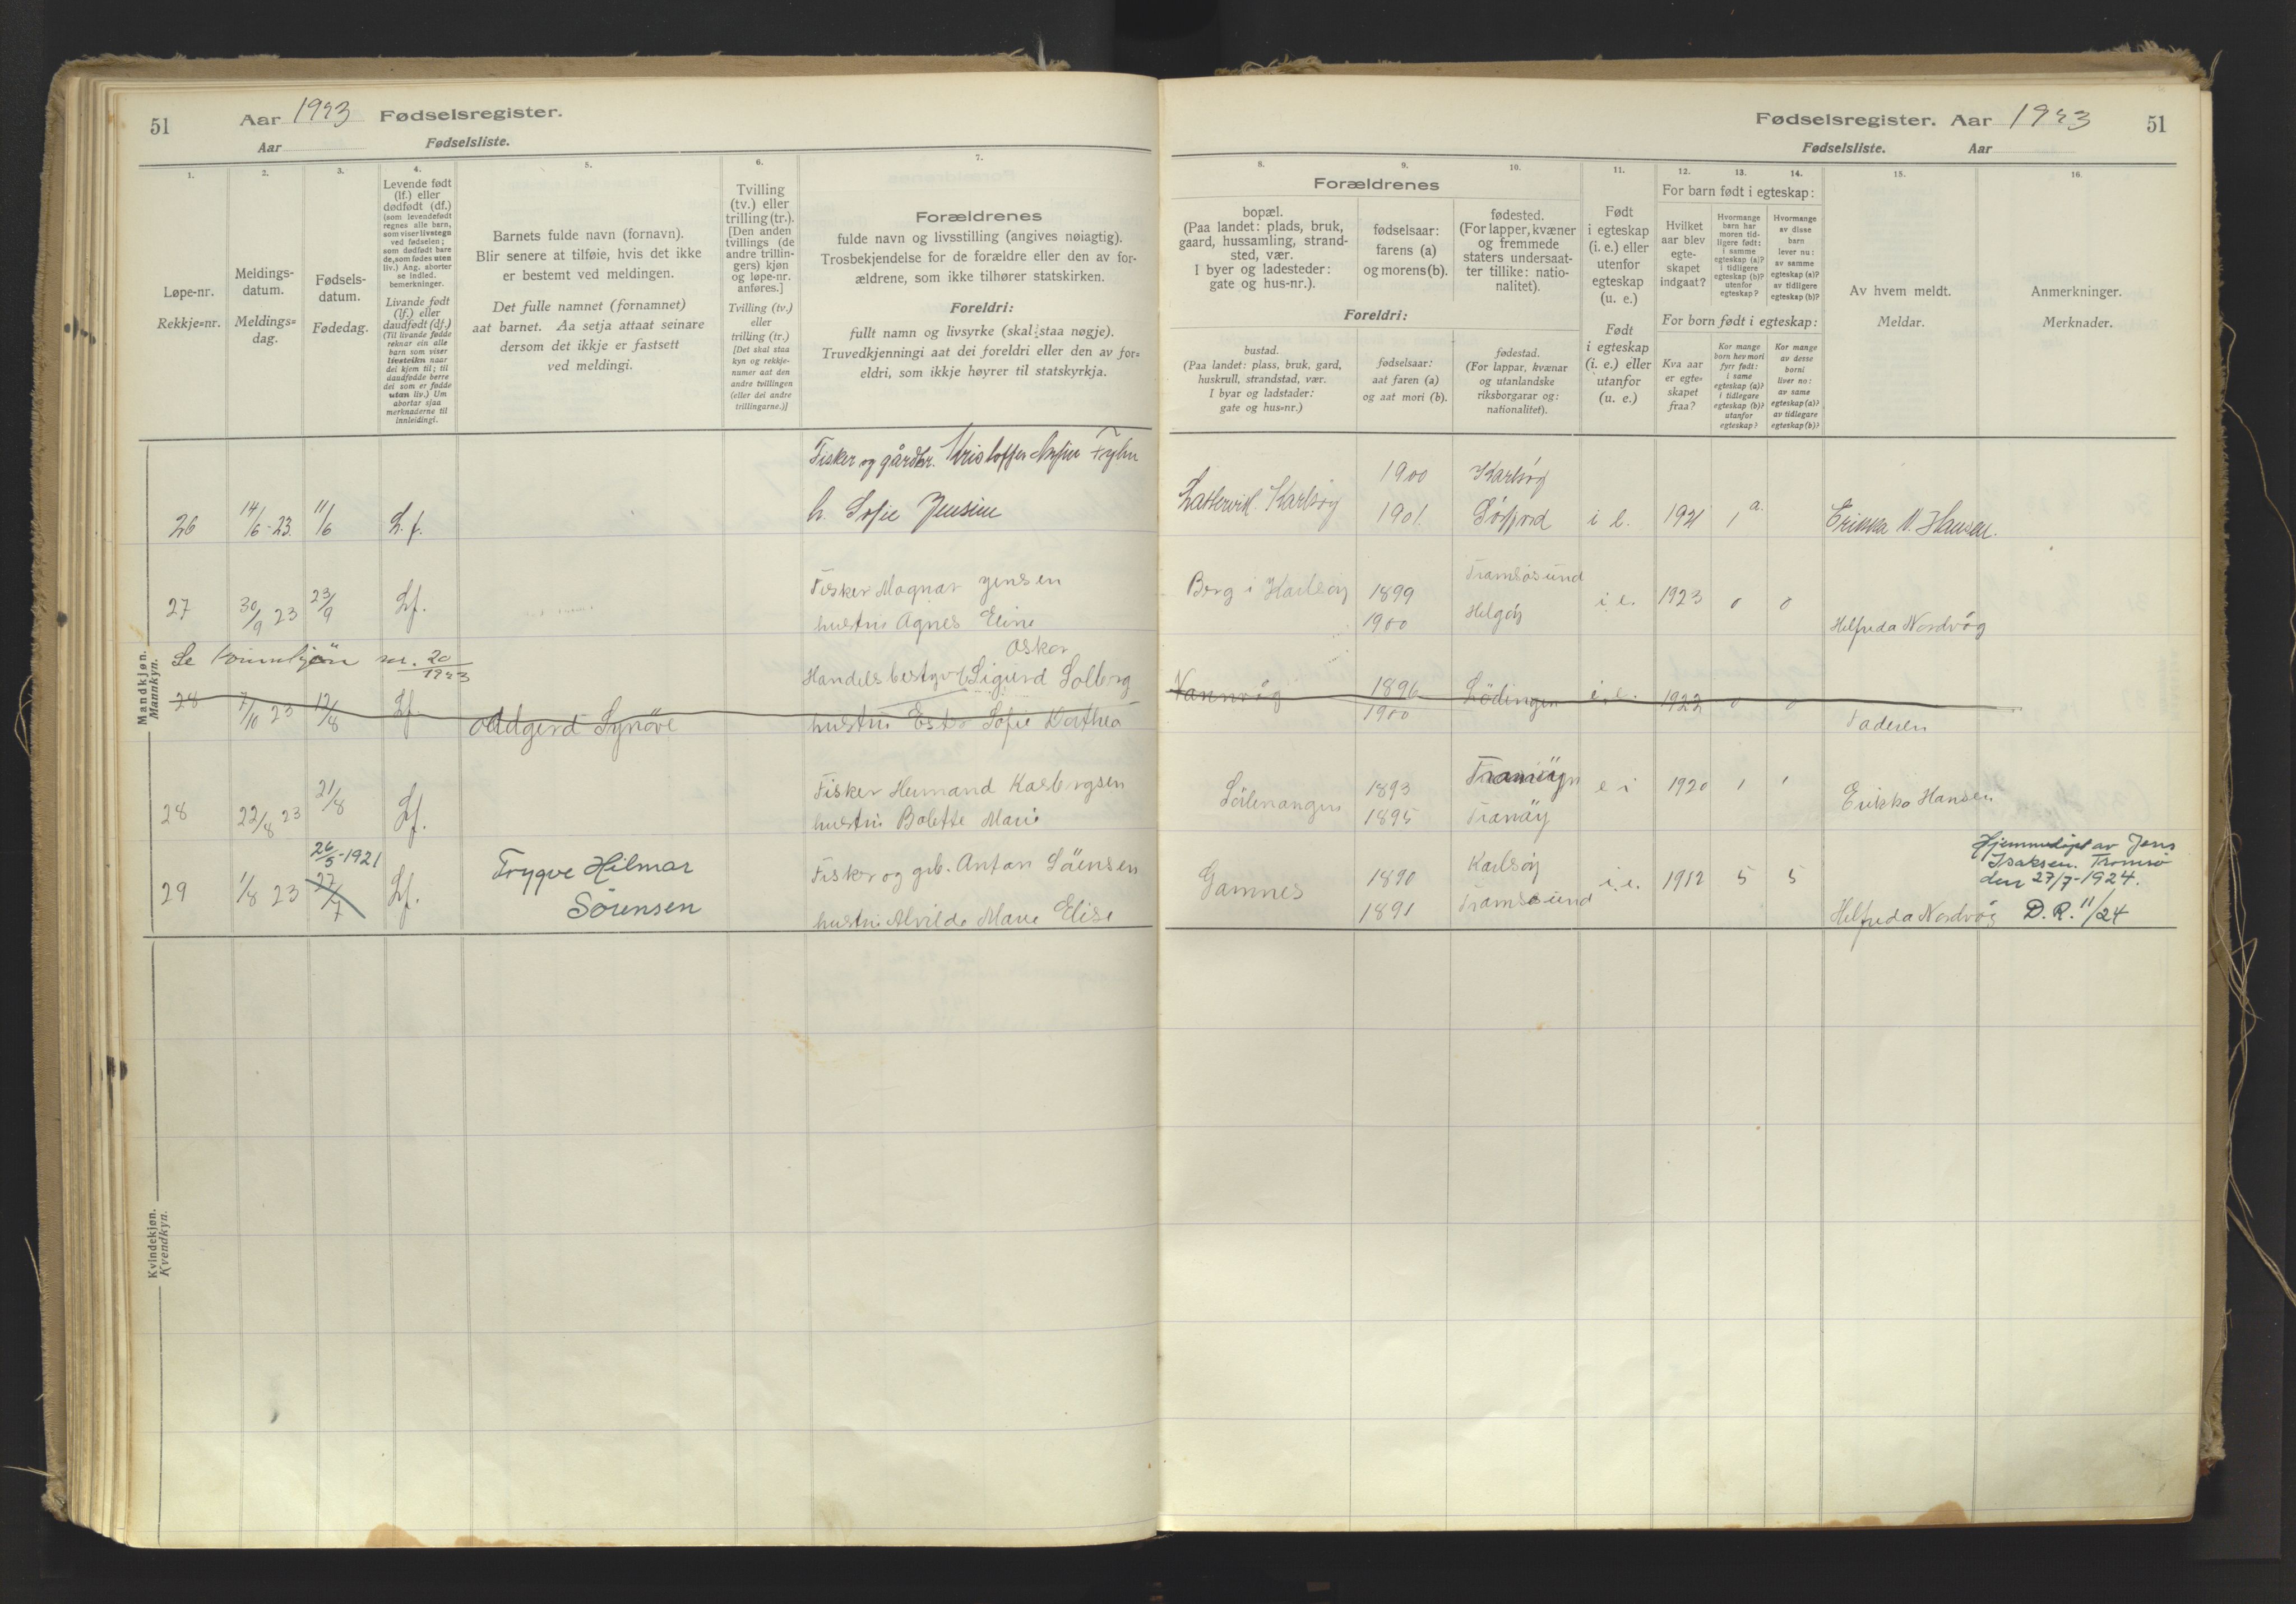 51
Aar 1923 Fødselsregister.
Aar Fødselsliste.
1.
2.
3.
4.
5.
6.
7.
Løpe-nr.
Rekkje=nr.
Meldings-
datum.
Meldings=
dag.
Fødsels-
datum.
Fødedag.
Levende født
(lf.) eller
dødfødt (df.)
(som levendefødt
regnes alle barn,
som viser livstegn
ved fødselen;
som dødfødt bare
de, som fødes uten
liv.) Ang. aborter
se indled.
bemerkninger.
Livande født
(lf.) eller
daudfødt (df.)
(Til livande fødde
reknar ein alle
barn som viser
livsteikn naar
dei kjem til; til
daudfødde berre
dei som er fødde
utan liv.) Um
abortar sjaa
merknaderne til
innleidingi.
Barnets fulde navn (fornavn).
Blir senere at tilføie, hvis det ikke
er bestemt ved meldingen.
Det fulle namnet (fornamnet)
aat barnet. Aa setja attaat seinare
dersom det ikkje er fastsett
ved meldingi.
Tvilling
(tv.) eller
trilling (tr.).
[Den anden
tvillings (de
andre trillin-
gers) kjøn
og løpe-nr.
anføres.]
Tvilling (tv.)
eller
trilling (tr.)
[Det skal staa
kyn og rekkje-
numer aat den
andre tvillingen
(eller dei andre
trillingarne.)]
Forældrenes
fulde navn og livsstilling (angives nøiagtig).
Trosbekjendelse for de forældre eller den av for-
ældrene, som ikke tilhører statskirken.
Foreldri:
fullt namn og livsyrke (skal staa nøgje).
Truvedkjenningi aat dei foreldri eller den av for=
eldri, som ikkje høyrer til statskyrkja.
Fødselsregister. Aar 1923 51
Fødselsliste. Aar
8.
9.
10.
11.
12.
13.
14.
15.
16.
Forældrenes
bopæl.
(Paa landet: plads, bruk,
gaard, hussamling, strand-
sted, vær.
I byer og ladesteder:
gate og hus-nr.).
fødselsaar:
farens (a)
og morens (b).
fødested.
(For lapper, kvæner
og fremmede
staters undersaat-
ter tillike: natio-
nalitet).
Foreldri:
bustad.
(Paa landet: plass, bruk, gard,
huskrull, strandstad, vær.
I byar og ladstader:
gate og hus=nr.)
fødselsaar:
aat faren (a)
og aat mori (b).
fødestad.
(For lappar, kvænar
og utanlandske
riksborgarar og:
nationalitet).
Født
i egteskap
(i. e.) eller
utenfor
egteskap
(u. e.)
Født
i egteskap
(i. e.) eller
utanfor
(u. e.)
For barn født i egteskap:
Hvilket
aar blev
egte-
skapet
indgaat?
Hvormange
barn har
moren tid-
ligere født:
i samme
egteskap (a)?
i tidligere
egteskap (b)?
utenfor
egteskap?
Hvormange
av disse
barn
lever nu:
av samme
egteskap (a)?
av tidligere
egteskap (b)?
For born født i egteskap:
Kva aar
er egte=
skapet
fraa?
Kor mange
born hev mori
fyrr født:
i same
egteskap (a)?
i tidlegare
egteskap (b)?
utanfor
egteskap?
Kor mange
av desse
borni
liver no:
av same
egteskap (a)?
av tidlegare
egteskap (b)?
Av hvem meldt.
Meldar.
Anmerkninger.
Merknader.
Mandkjøn.
Mannkyn.
26 14/6-23. 11/6 L. f. Fisker og gårdbr. Kristoffer Fyhn
h. Sofie Jensine
Karlsøy 1900 Karlsøy
1901. i e. 1921 1 a. Erikka N. Hansen.
27 30/9 23 23/9 Lf. Fisker Magnar Jensen
hustru Agnes Eline
Berg i Karlsöy 1899 Tromsösund
1900 Helgöy i. e. 1923 0 0 Helfrida Nordvåg
Se kvinnekjön nr. 20/1923
28 7/10 23 12/8 Lf. Oddgerd Synöve Handelsbestyr Sigurd Oskar Solberg
hustru Ester Sofie Dorthea
Vannvåg 1896 Lödingen i. e. 1922 0 0
1900 Faderen
28 22/8 23 21/8 Lf. Fisker Hermand Karlbergsen
hustru Bolette Marie
1893 Tranöy e i 1920 1 1 Erikka Hansen
1895 Tranöy
29 1/8 23 26/5-1921 27/7 Lf. Trygve Hilmar
Sørensen
Fisker og grb. Anton Sörensen
hustru Alvilde Marie Elise
Gamnes 1890 Karlsöy
1891 Tromsösund i. e. 1912 5 5 Helfrida Nordvåg
Hjemmedöpt av Jens
Isaksen. Tromsø
den 27/7-1924.
D. R. 11/24
Kvindekjøn.
Kvendkyn.